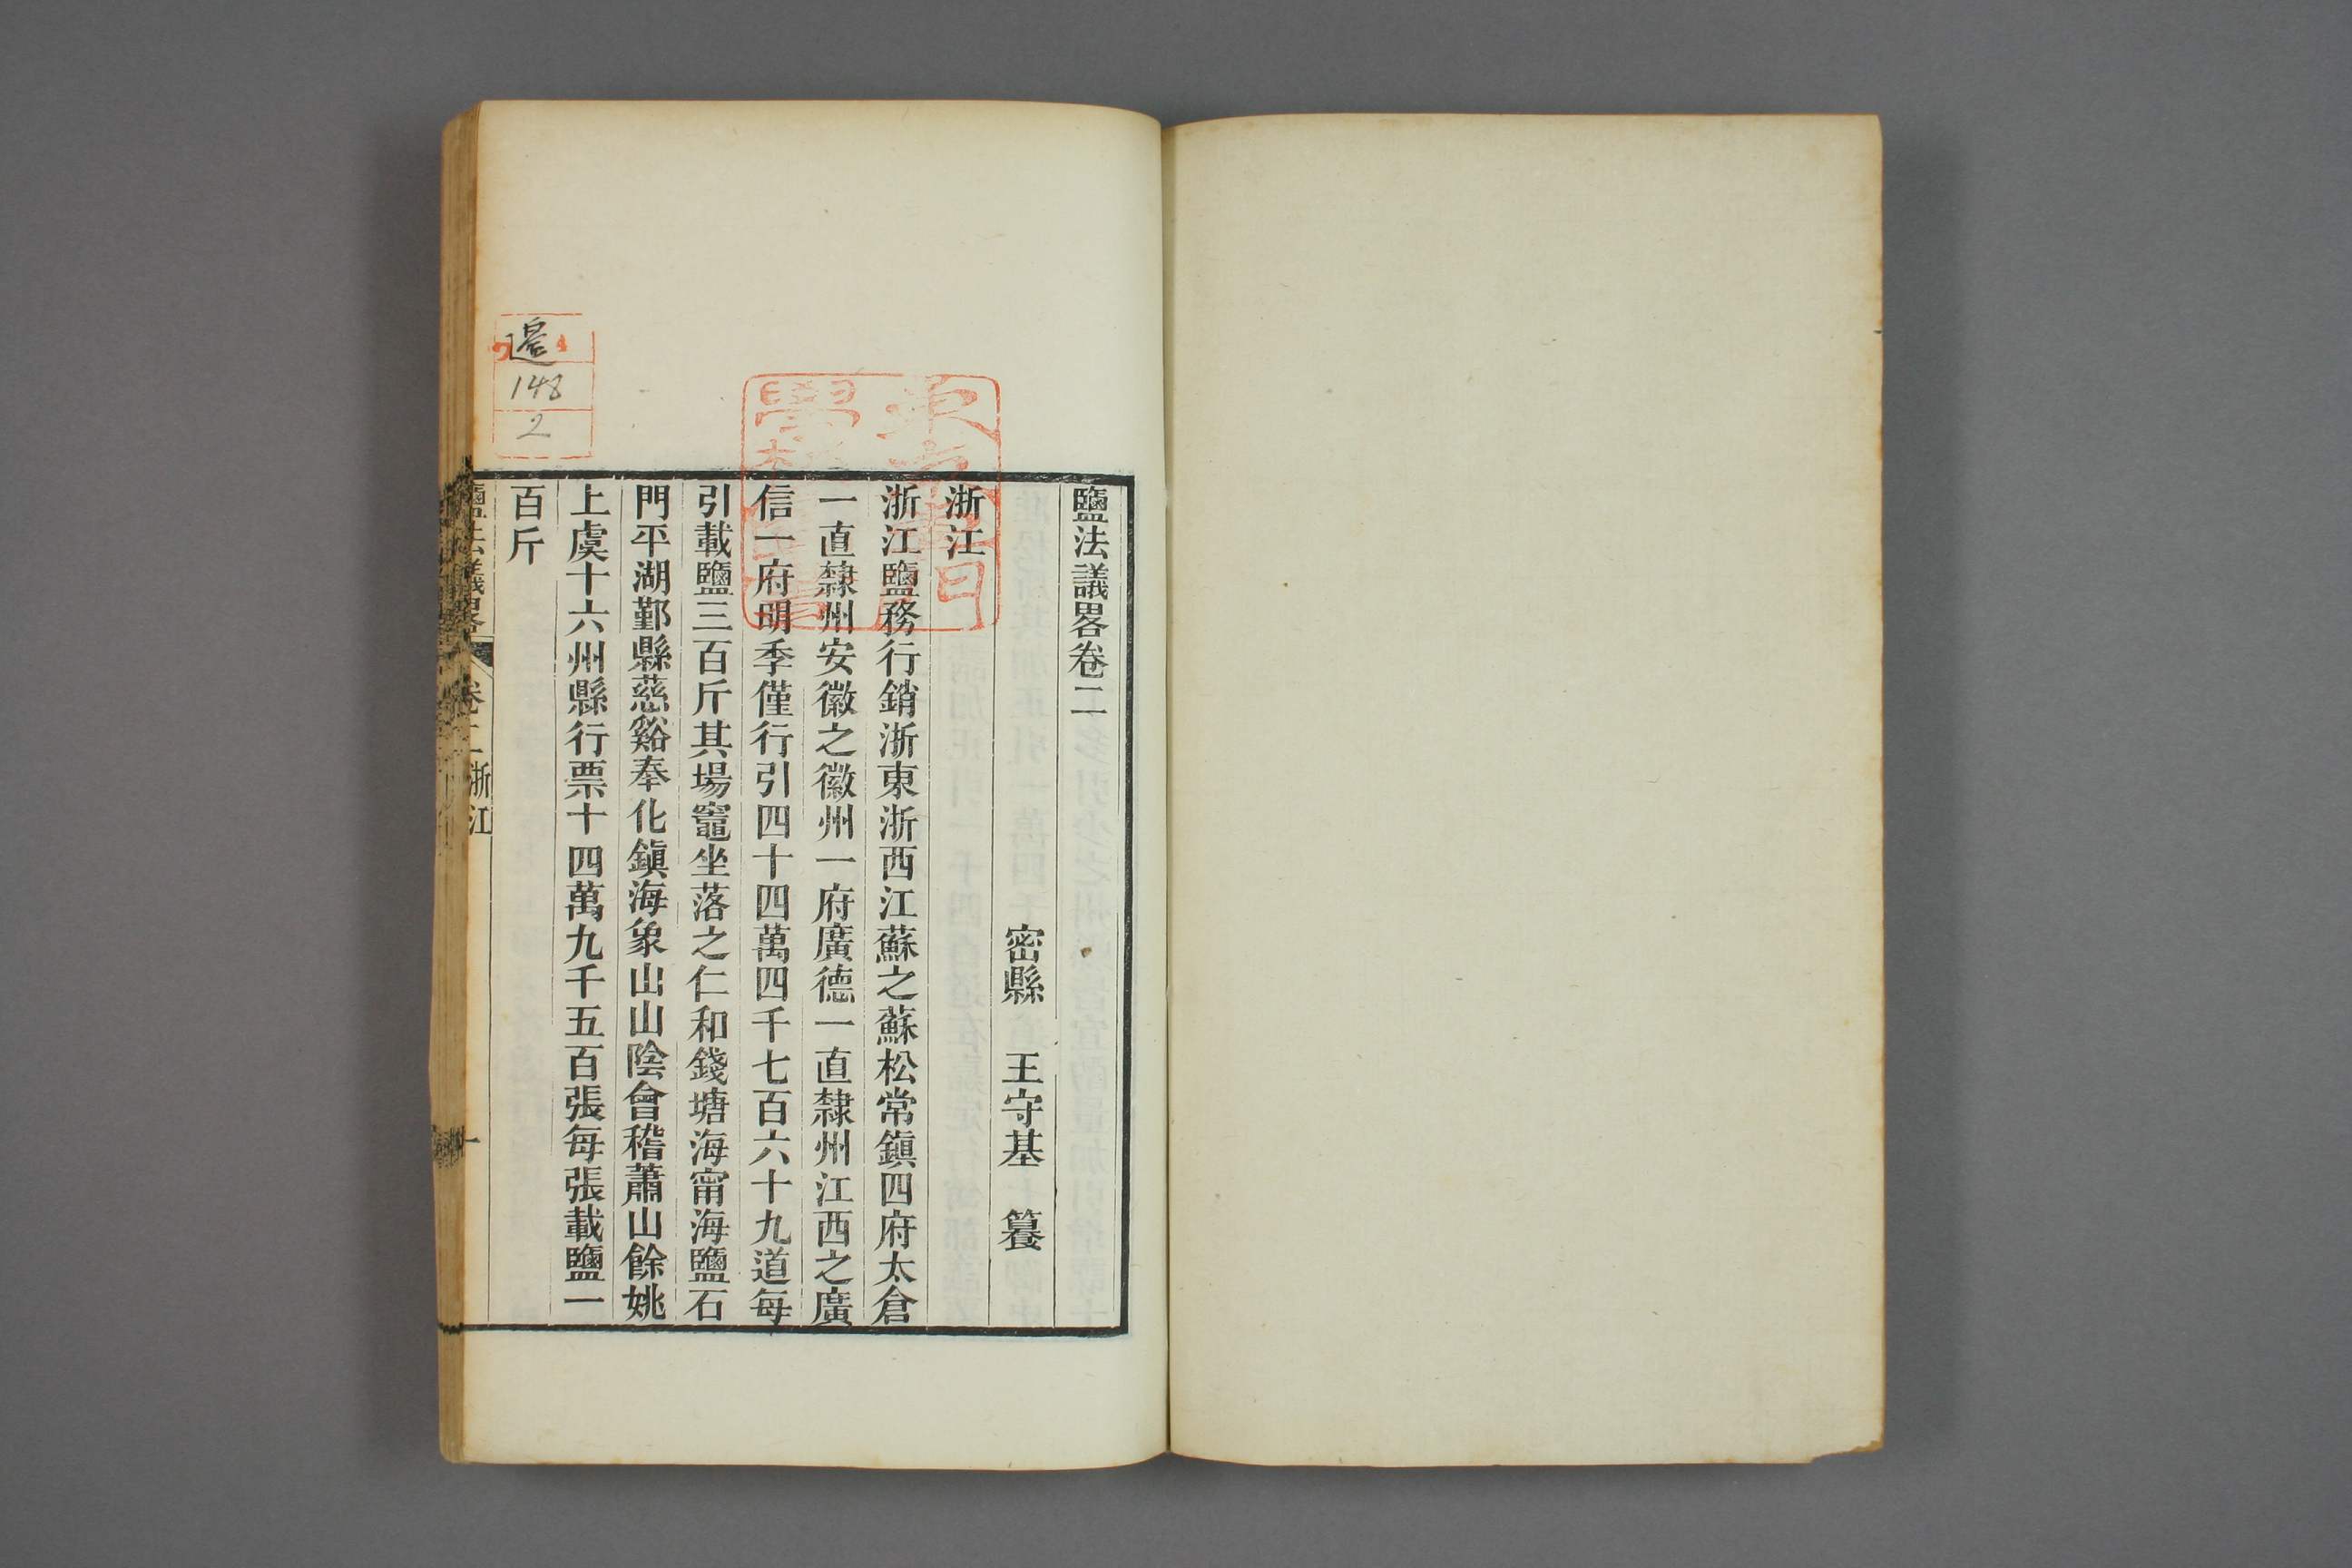 鹽法議畧卷二
密縣 王守基 籑
浙江
浙江鹽務行銷浙東浙西江蘇之蘇松常鎭四府太倉
一直隸州安徽之徽州一府廣德一直隸州江西之廣
信一府明季僅行引四十四萬四千七百六十九道每
引載鹽三百斤其場竈坐落之仁和錢塘海甯海鹽石
門平湖鄞縣慈谿奉化鎭海象山山陰會稽蕭山餘姚
上虞十六州縣行票十四萬九千五百張每張載鹽一
百斤
鹽法議畧 卷二 浙江 一
148
2